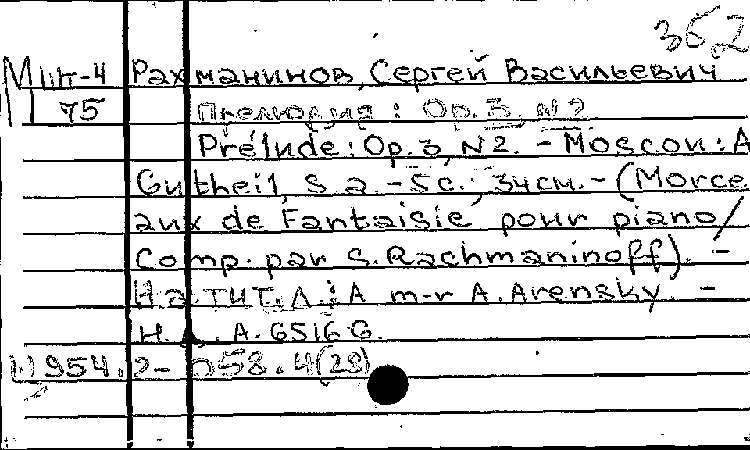 362
Миг-4 Рахманинов, Сергей Васильевич
75 Прелюдия : Op. 3, N 2
Prélude : Op. 3, N 2. - Moscou : A
Gutheil, S. a. - 5 c. ; 34 см. - (Morce
aux de Fantaisie pour piano /
Comp. par S. Rachmaninoff). -
На тит. л. : A m-r A. Arensky. -
Н. д. A. 6516 G.
954.2- 58.4(28)